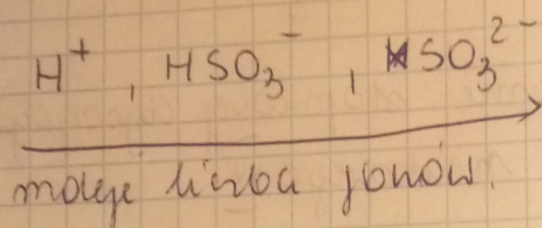 H⁺, HSO₃⁻, SO₃²⁻
maleje liczba jonów.